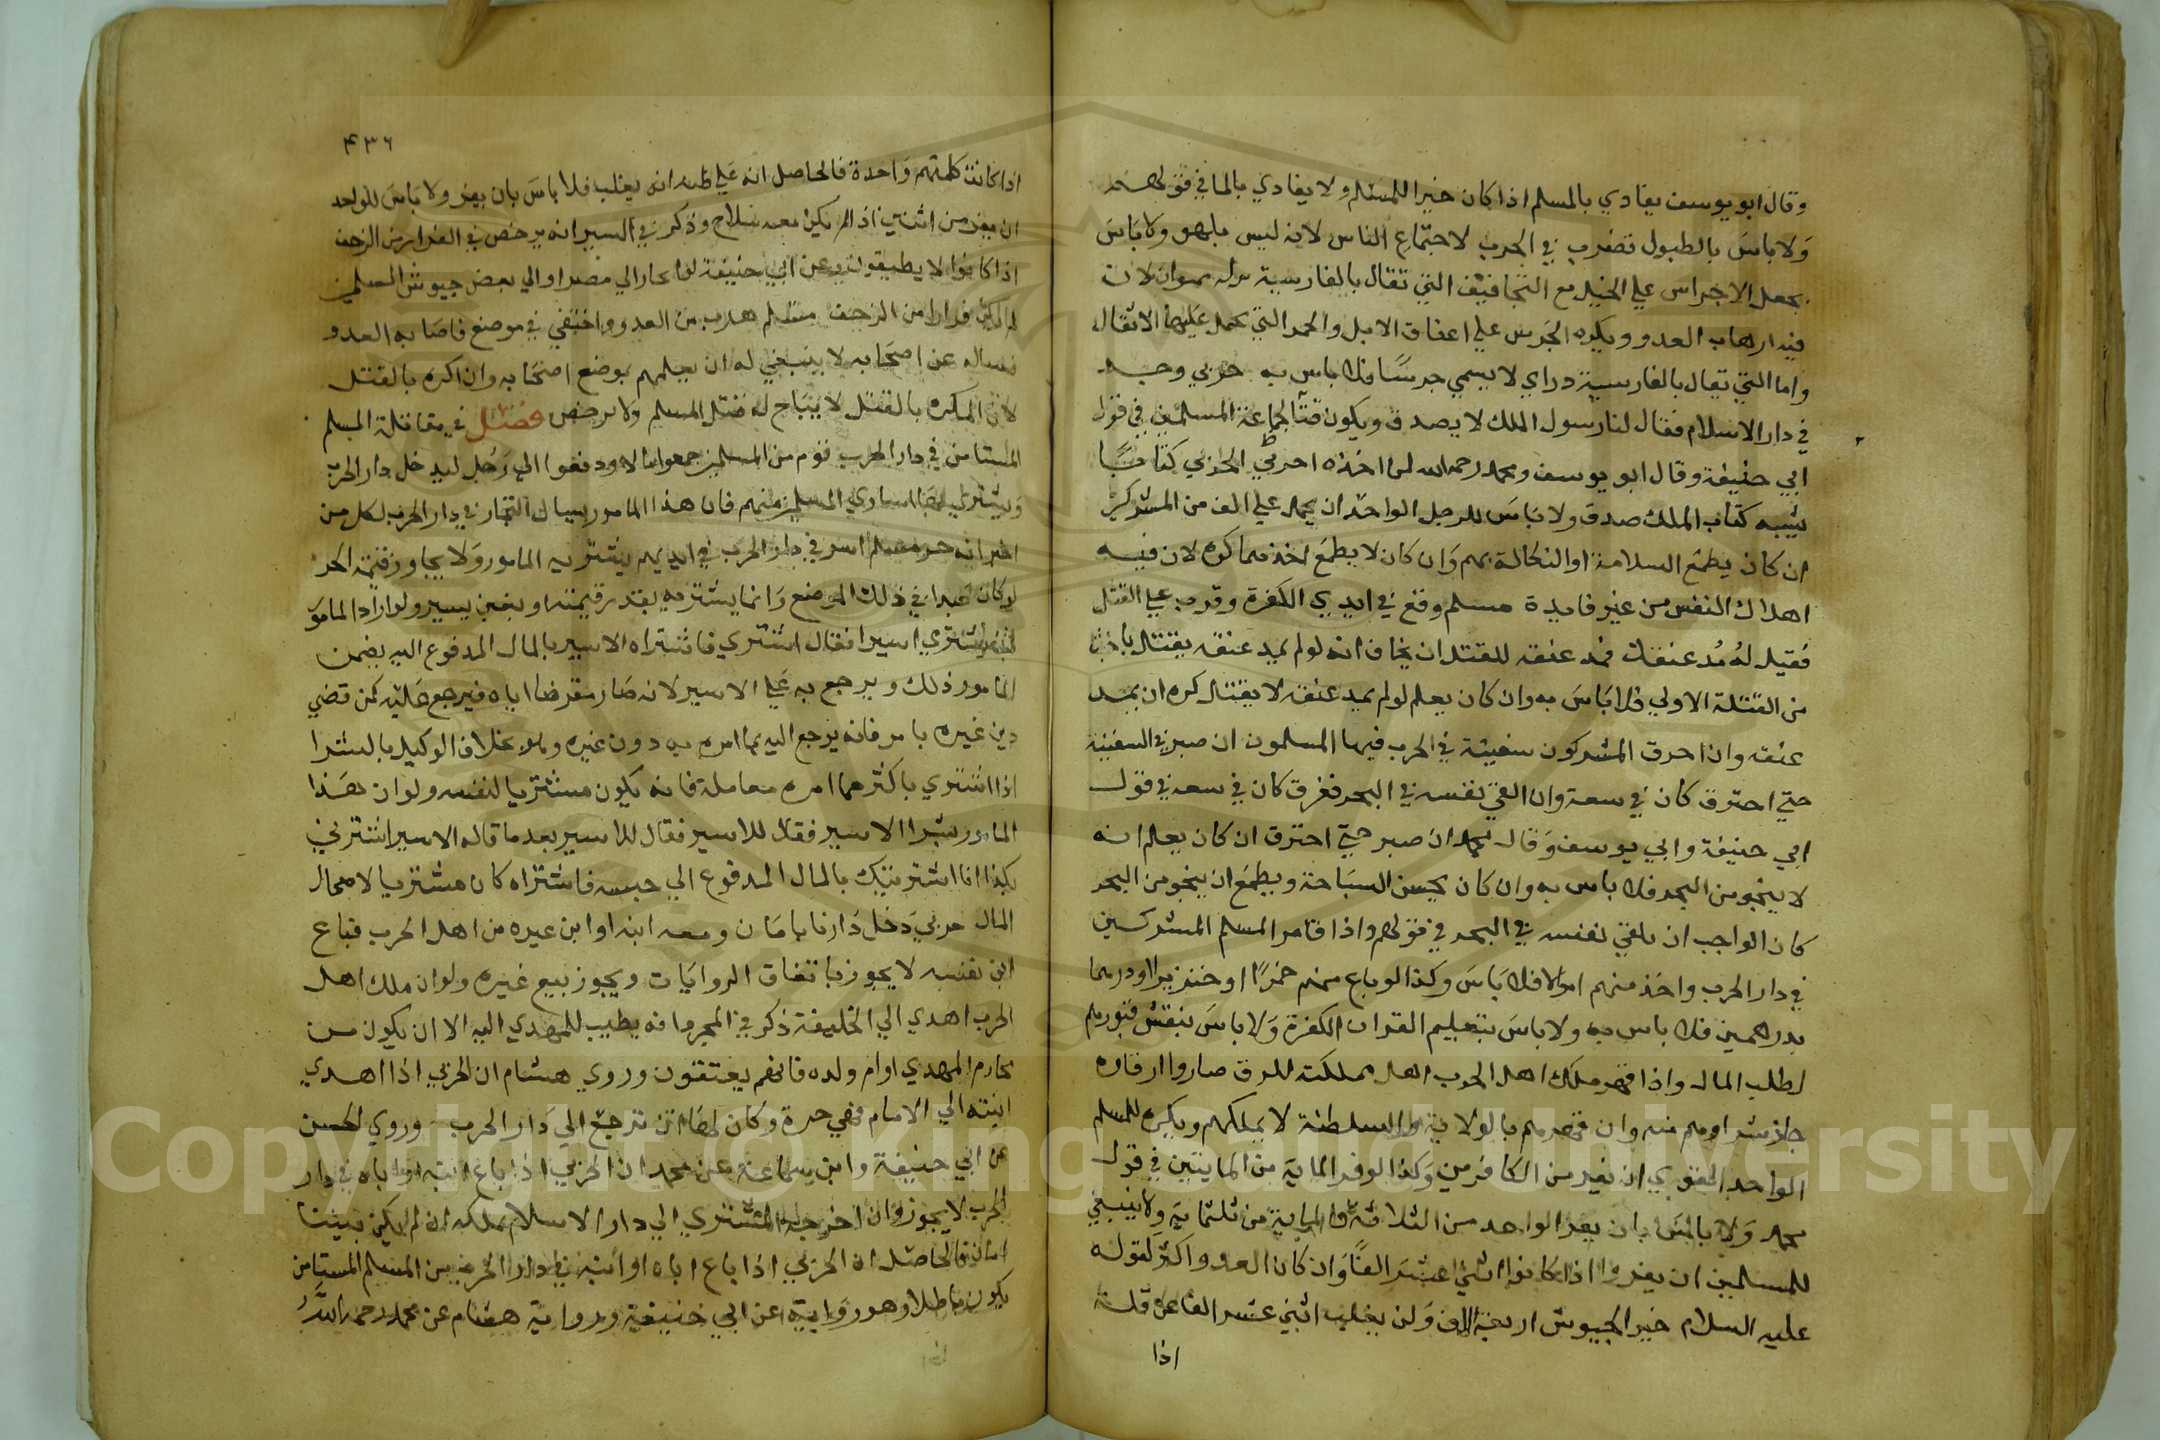 وقال ابو يوسف يفادي بالمسلم اذا كان خيرا للمسلم ولا يفادي بالمال في قولهم
ولا باس بالطبول تضرب في الحرب لاجتماع الناس لانه ليس بلهو ولا باس
بجعل الاجراس علي الخيل مع التجافيف التي تقال بالفارسية لان
فيه ارهاب العدو ويكره الجرس علي اعناق الابل والحمر التي تحمل عليها الاثقال
واما التي تقال بالفارسية دراي لا يسمي جرسا فلا باس به حربي وجد
في دار الاسلام فقال لنا رسول الملك لا يصدق ويكون فيئا لجماعة المسلمين في قول
ابي حنيفة وقال ابو يوسف ومحمد رحمه الله لمن اخذه اخرج الحربي كتابا
يشبه كتاب الملك صدق ولا باس للرجل الواحد ان يحمل علي الف من المشركين
ان كان يطمع السلامة او النكاية بهم وان كان لا يطمع احدهما كره لان فيه
اهلاك النفس من غير فايدة مسلم وقع في ايدي الكفرة وقرب علي القتل
فقيل له مد عنقك فمد عنقه للقتل ان يخاف انه لو لم يمد عنقه يقتل باخبث
من القتلة الاولي فلا باس به وان كان يعلم لو لم يمد عنقه لا يقتل كره ان يمد
عنقه وان احرق المشركون سفينة في الحرب فيها المسلمون ان صبر في السفينة
حتي احترق كان في سعة وان القي نفسه في البحر فغرق كان في سعه في قول
ابي حنيفة وابي يوسف وقال محمد ان صبر حتي احترق ان كان يعلم انه
لا ينجو من البحر فلا باس به وان كان يحسن السباحة ويطمع ان ينجو من البحر
كان الواجب ان يلقي نفسه في البحر في قولهم واذا قامر المسلم المشركين
في دار الحرب واخذ منهم اموالا فلا باس وكذا لو باع منهم خمرا او خنزيرا او درهما
بدرهمين فلا باس به ولا باس بتعليم القران الكفرة ولا باس بنقش قبورهم
لطلب المال واذا قهر ملك اهل الحرب اهل مملكته للرق صاروا ارقاء
جاز شراوهم منه وان قهرهم بالولاية والسلطنة لا يملكهم ويكره للمسلم
الواحد القوي ان يفر من الكافرين وكذا لو فر الماية من المايتين في قول
محمد ولا باس بان يفر الواحد من الثلاثة والماية من ثلثماية ولا ينبغي
للمسلمين ان يفروا اذا كانوا اثني عشر الفا وان كان العدو اكثر لقوله
عليه السلام خير الجيوش اربعة الاف ولن يغلب اثني عشر الفا عن قلة
اذا
٤٣٦
اذا كانت كلمتهم واحدة فالحاصل انه علي ظنه انه يغلب فلا باس بان يفر ولا باس للواحد
ان يفر من اثنين اذا لم يكن معه سلاح وذكر في السير انه يرخص في الفرار من الزحف
اذا كانوا لا يطيقون وعن ابي حنيفة لو انحاز الي مصر او الي بعض جيوش المسلمين
لم يكن فرارا من الزحف مسلم هرب من العدو واختفي في موضع فاصابه العدو
فساله عن اصحابه لا ينبغي له ان يعلمهم بموضع اصحابه وان اكره بالقتل
لان المكره بالقتل لا يباح له قتل المسلم ولا يرخص فصل في مقاتلة المسلم
المستامن في دار الحرب قوم من المسلمين جمعوا مالا ودفعوا الي رجل ليدخل دار الحرب
ويشتري بها اساري المسلمين منهم فان هذا المامور يسال التجار في دار الحرب لكل من
اخبر انه حر مسلم اسر في دار الحرب في ايديهم يشتريه المامور ولا يجاوز قيمة الحر
لو كان عبدا في ذلك الموضع وانما يشتريه بقدر قيمته او بغبن يسير ولو اراد المامور
يشتري اسيرا فقال اشتري فاشتراه الاسير بالمال المدفوع اليه يضمن
المامور ذلك ويرجع به علي الاسير لانه صار مقرضا اياه فيرجع عليه كمن قضي
دين غيره بامر فانه يرجع اليه بما امره به دون غيره وهو بخلاف الوكيل بالشرا
اذا اشتري باكثر مما امره معاملة فانه يكون مشتريا لنفسه ولو ان هذا
المامور بشرا الاسير فقال للاسير فقال للاسير بعد ما قاله الاسير اشترني
بكذا انا اشتريتك بالمال المدفوع الي حسبة فاشتراه كان مشتريا لاصحاب
المال حربي دخل دارنا بامان ومعه ابنه او ابن غيره من اهل الحرب فباع
ابن نفسه لا يجوز باتفاق الروايات ويجوز بيع غيره ولو ان ملك اهل
الحرب اهدي الي الخليفة ذكر في المجرد انه يطيب للمهدي اليه الا ان يكون من
محارم المهدي او ام ولده فانهم يعتقون وروي هشام ان الحربي اذا اهدي
ابنته الي الامام فهي حرة وكان لها ان ترجع الي دار الحرب وروي الحسن
عن ابي حنيفة وابن سماعة عن محمد ان الحربي اذا باع ابنه او اباه في دار
الحرب لا يجوز وان اخرجه المشتري الي دار الاسلام يملكه ان لم يكن بيننا
امان فالحاصل ان الحربي اذا باع اباه او ابنه في دار الحرب من المسلم المستامن
يكون باطلا وهو رواية عن ابي حنيفة ورواية هشام عن محمد رحمه الله